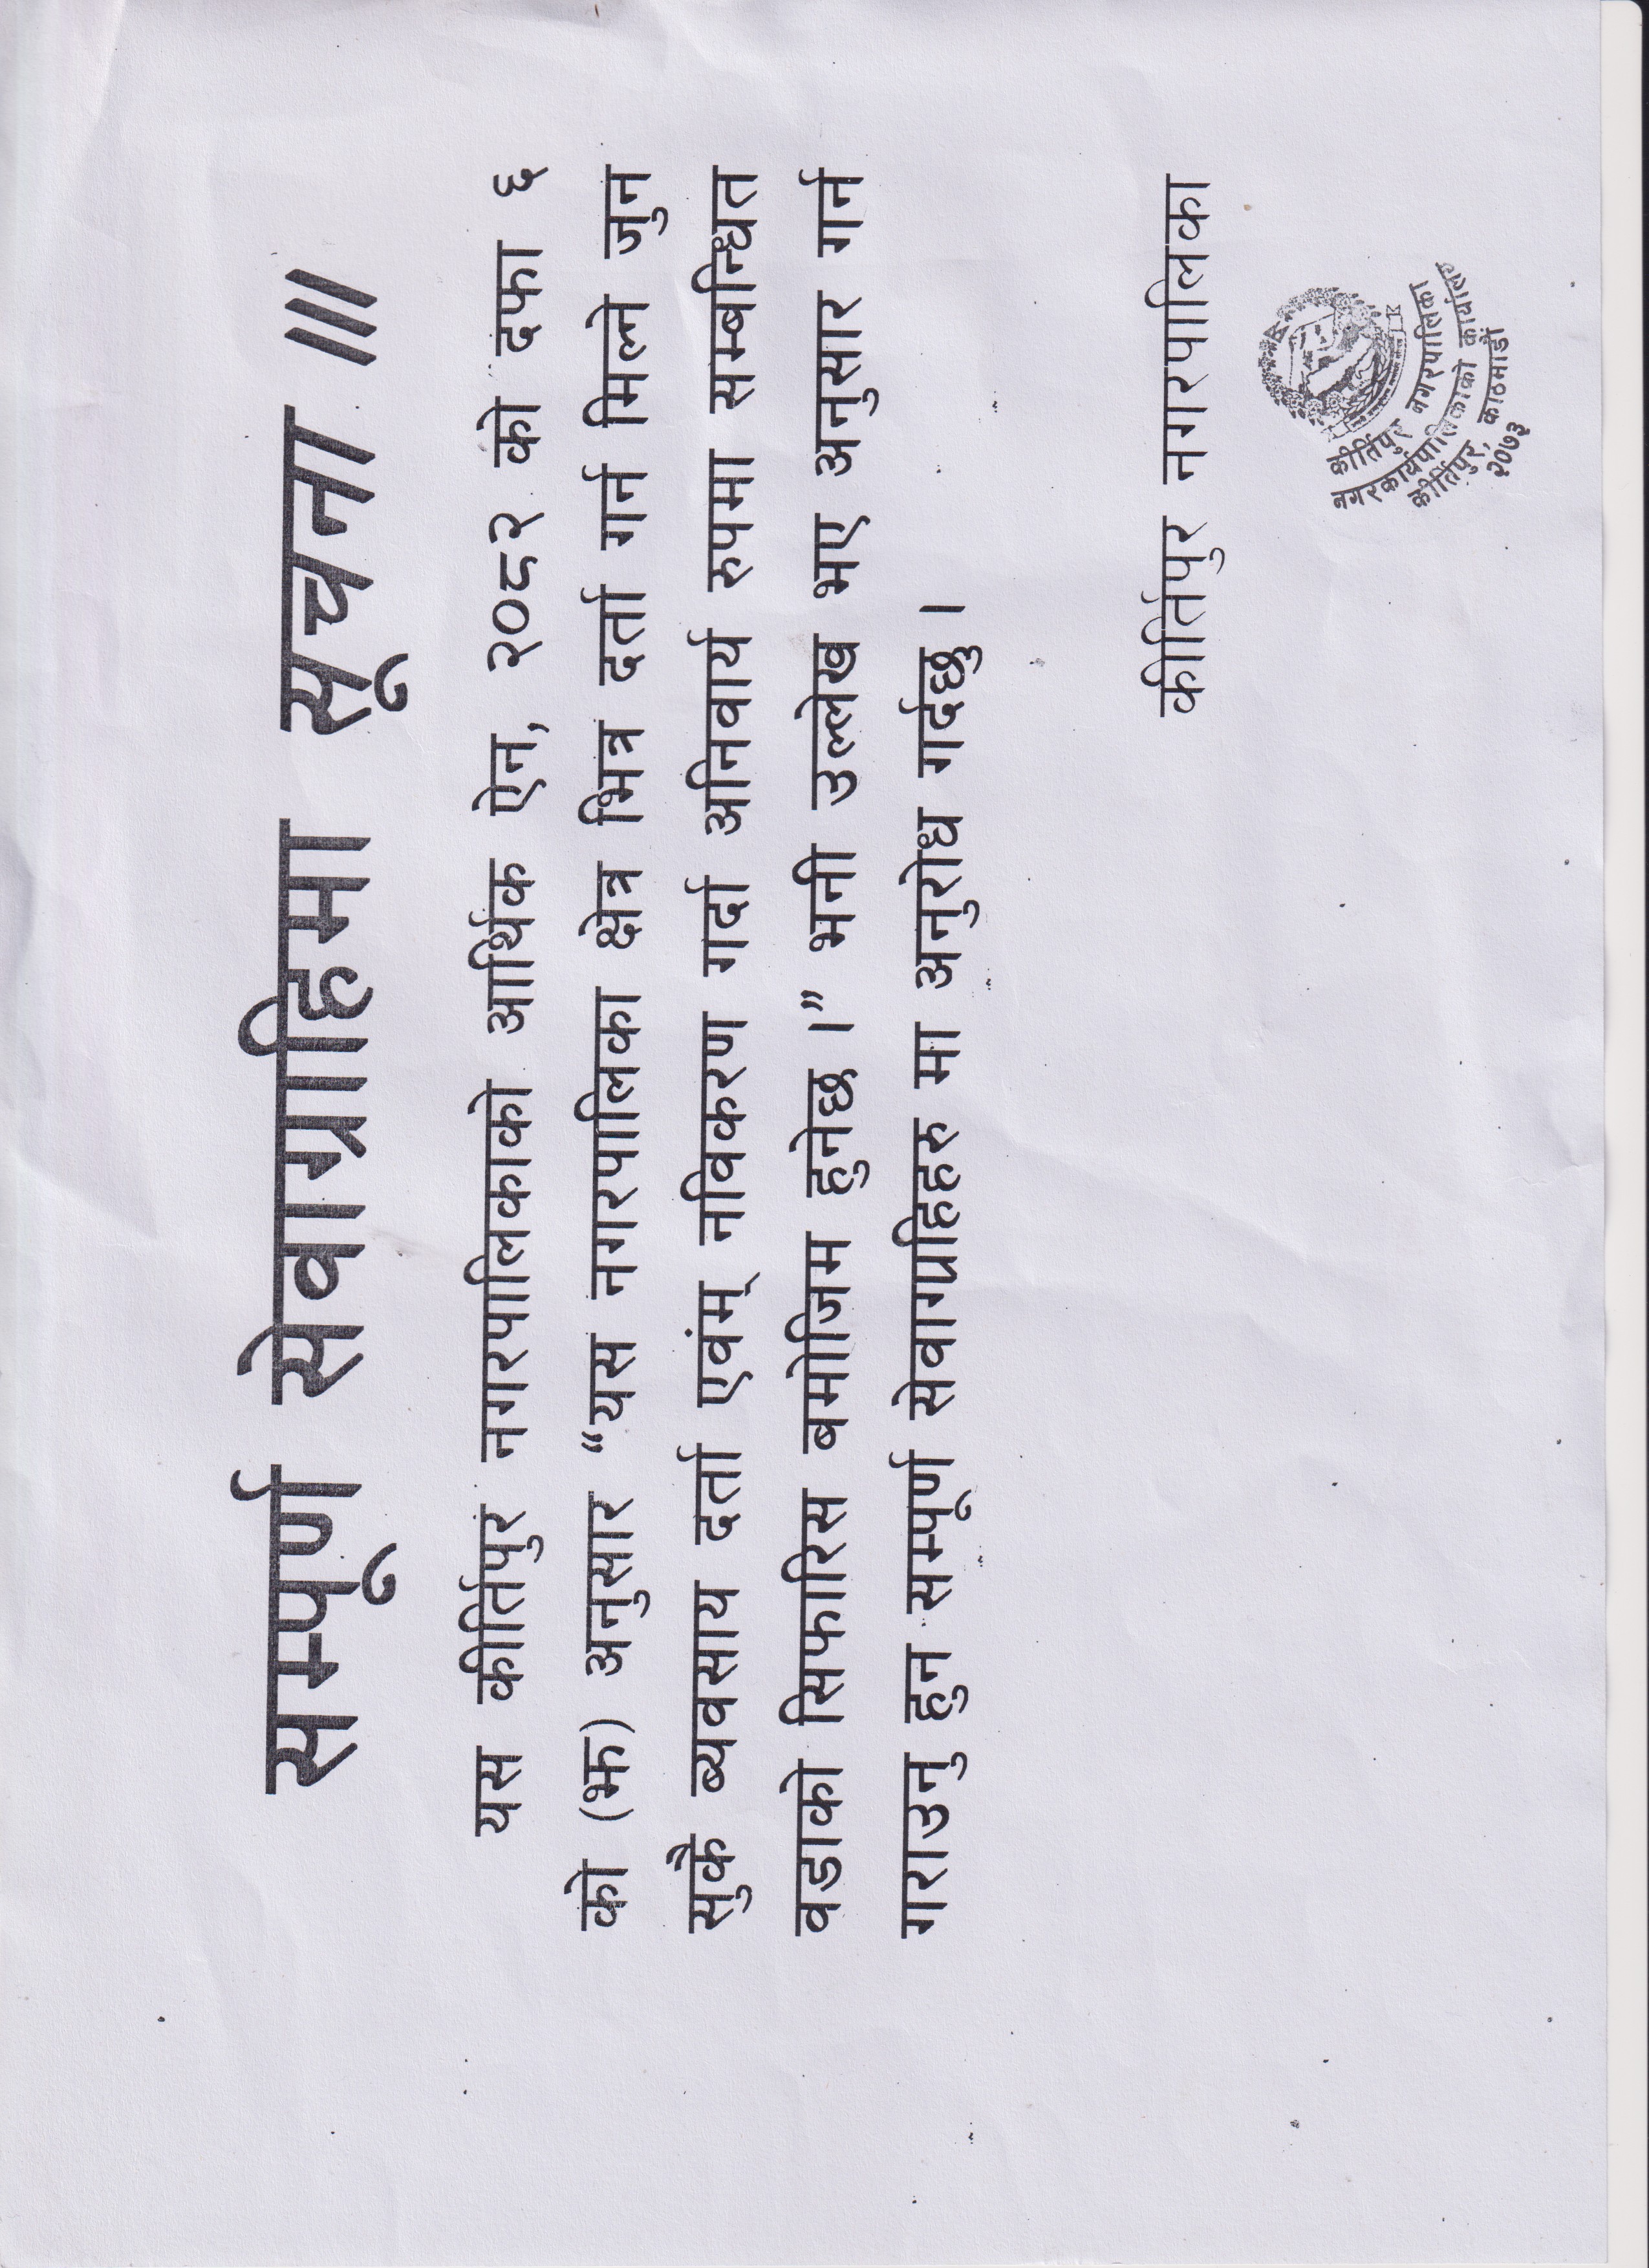 सम्पूर्ण सेवाग्राहिमा सूचना ///
यस कीर्तिपुर नगरपालिकाको आर्थिक ऐन, २०८२ को दफा ६
को (झ) अनुसार “यस नगरपालिका क्षेत्र भित्र दर्ता गर्न मिल्ने जुन
सुकै ब्यवसाय दर्ता एवंम् नविकरण गर्दा अनिवार्य रुपमा सम्बन्धित
वडाको सिफारिस बमोजिम हुनेछ ।” भनी उल्लेख भए अनुसार गर्न
गराउनु हुन सम्पूर्ण सेवाग्राहिहरु मा अनुरोध गर्दछु ।
कीर्तिपुर नगरपालिका
कीर्तिपुर नगरपालिका
नगरकार्यपालिकाको कार्यालय
कीर्तिपुर, काठमाडौं
२०७३